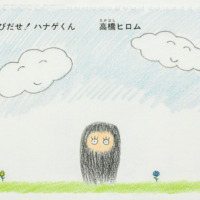 びだせ! ハナゲくん 高橋ヒロム
たかはし